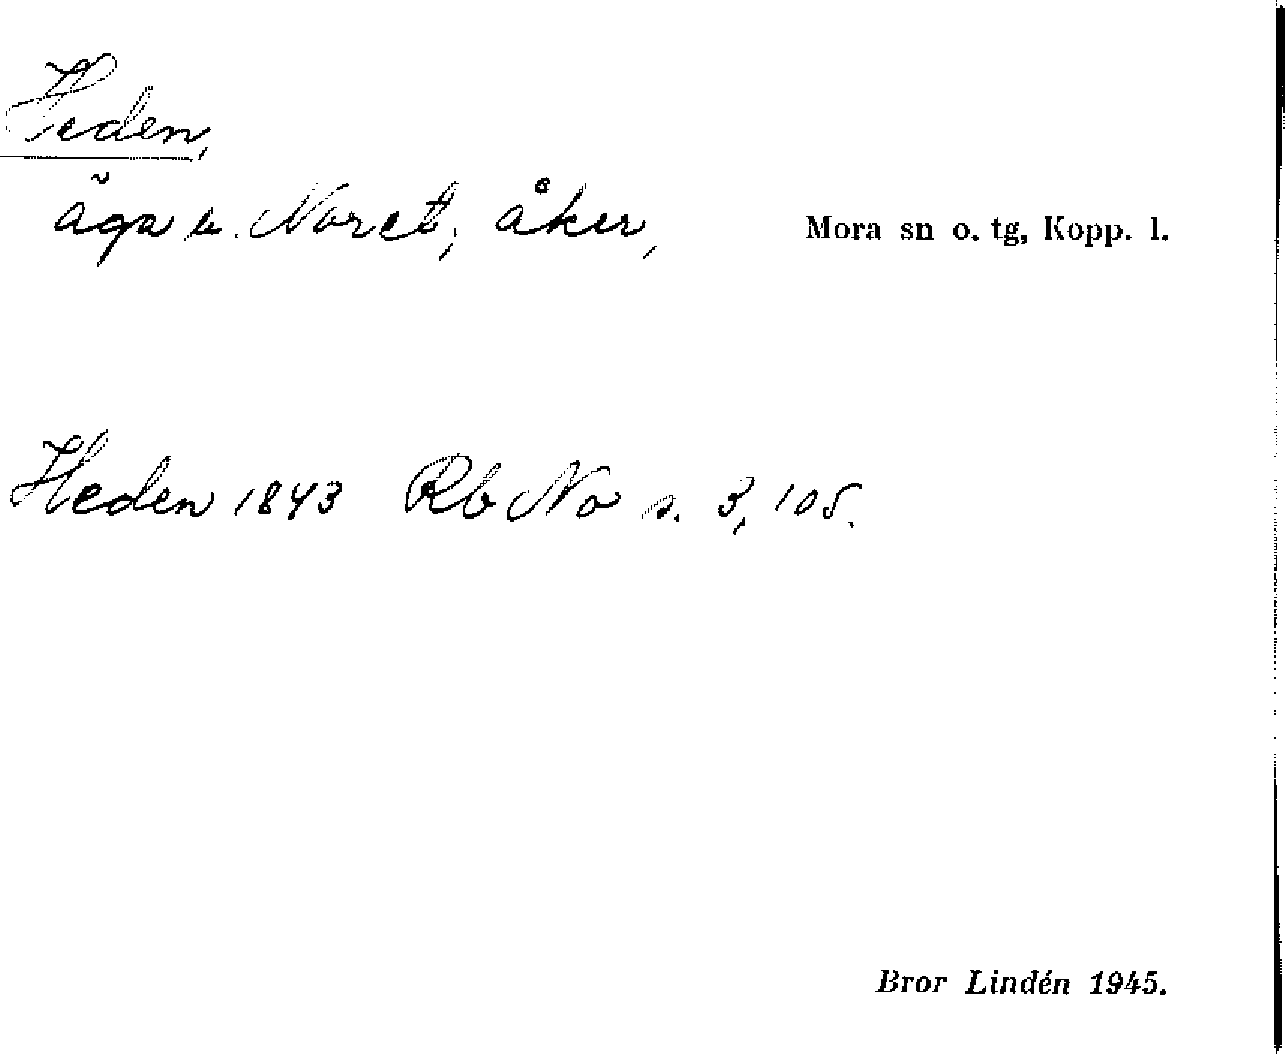 Heden,
äga t. Noret, åker, Mora sn o. tg, Kopp. l.
Heden 1843 Rb No s. 3, 105.
Bror Lindén 1945.